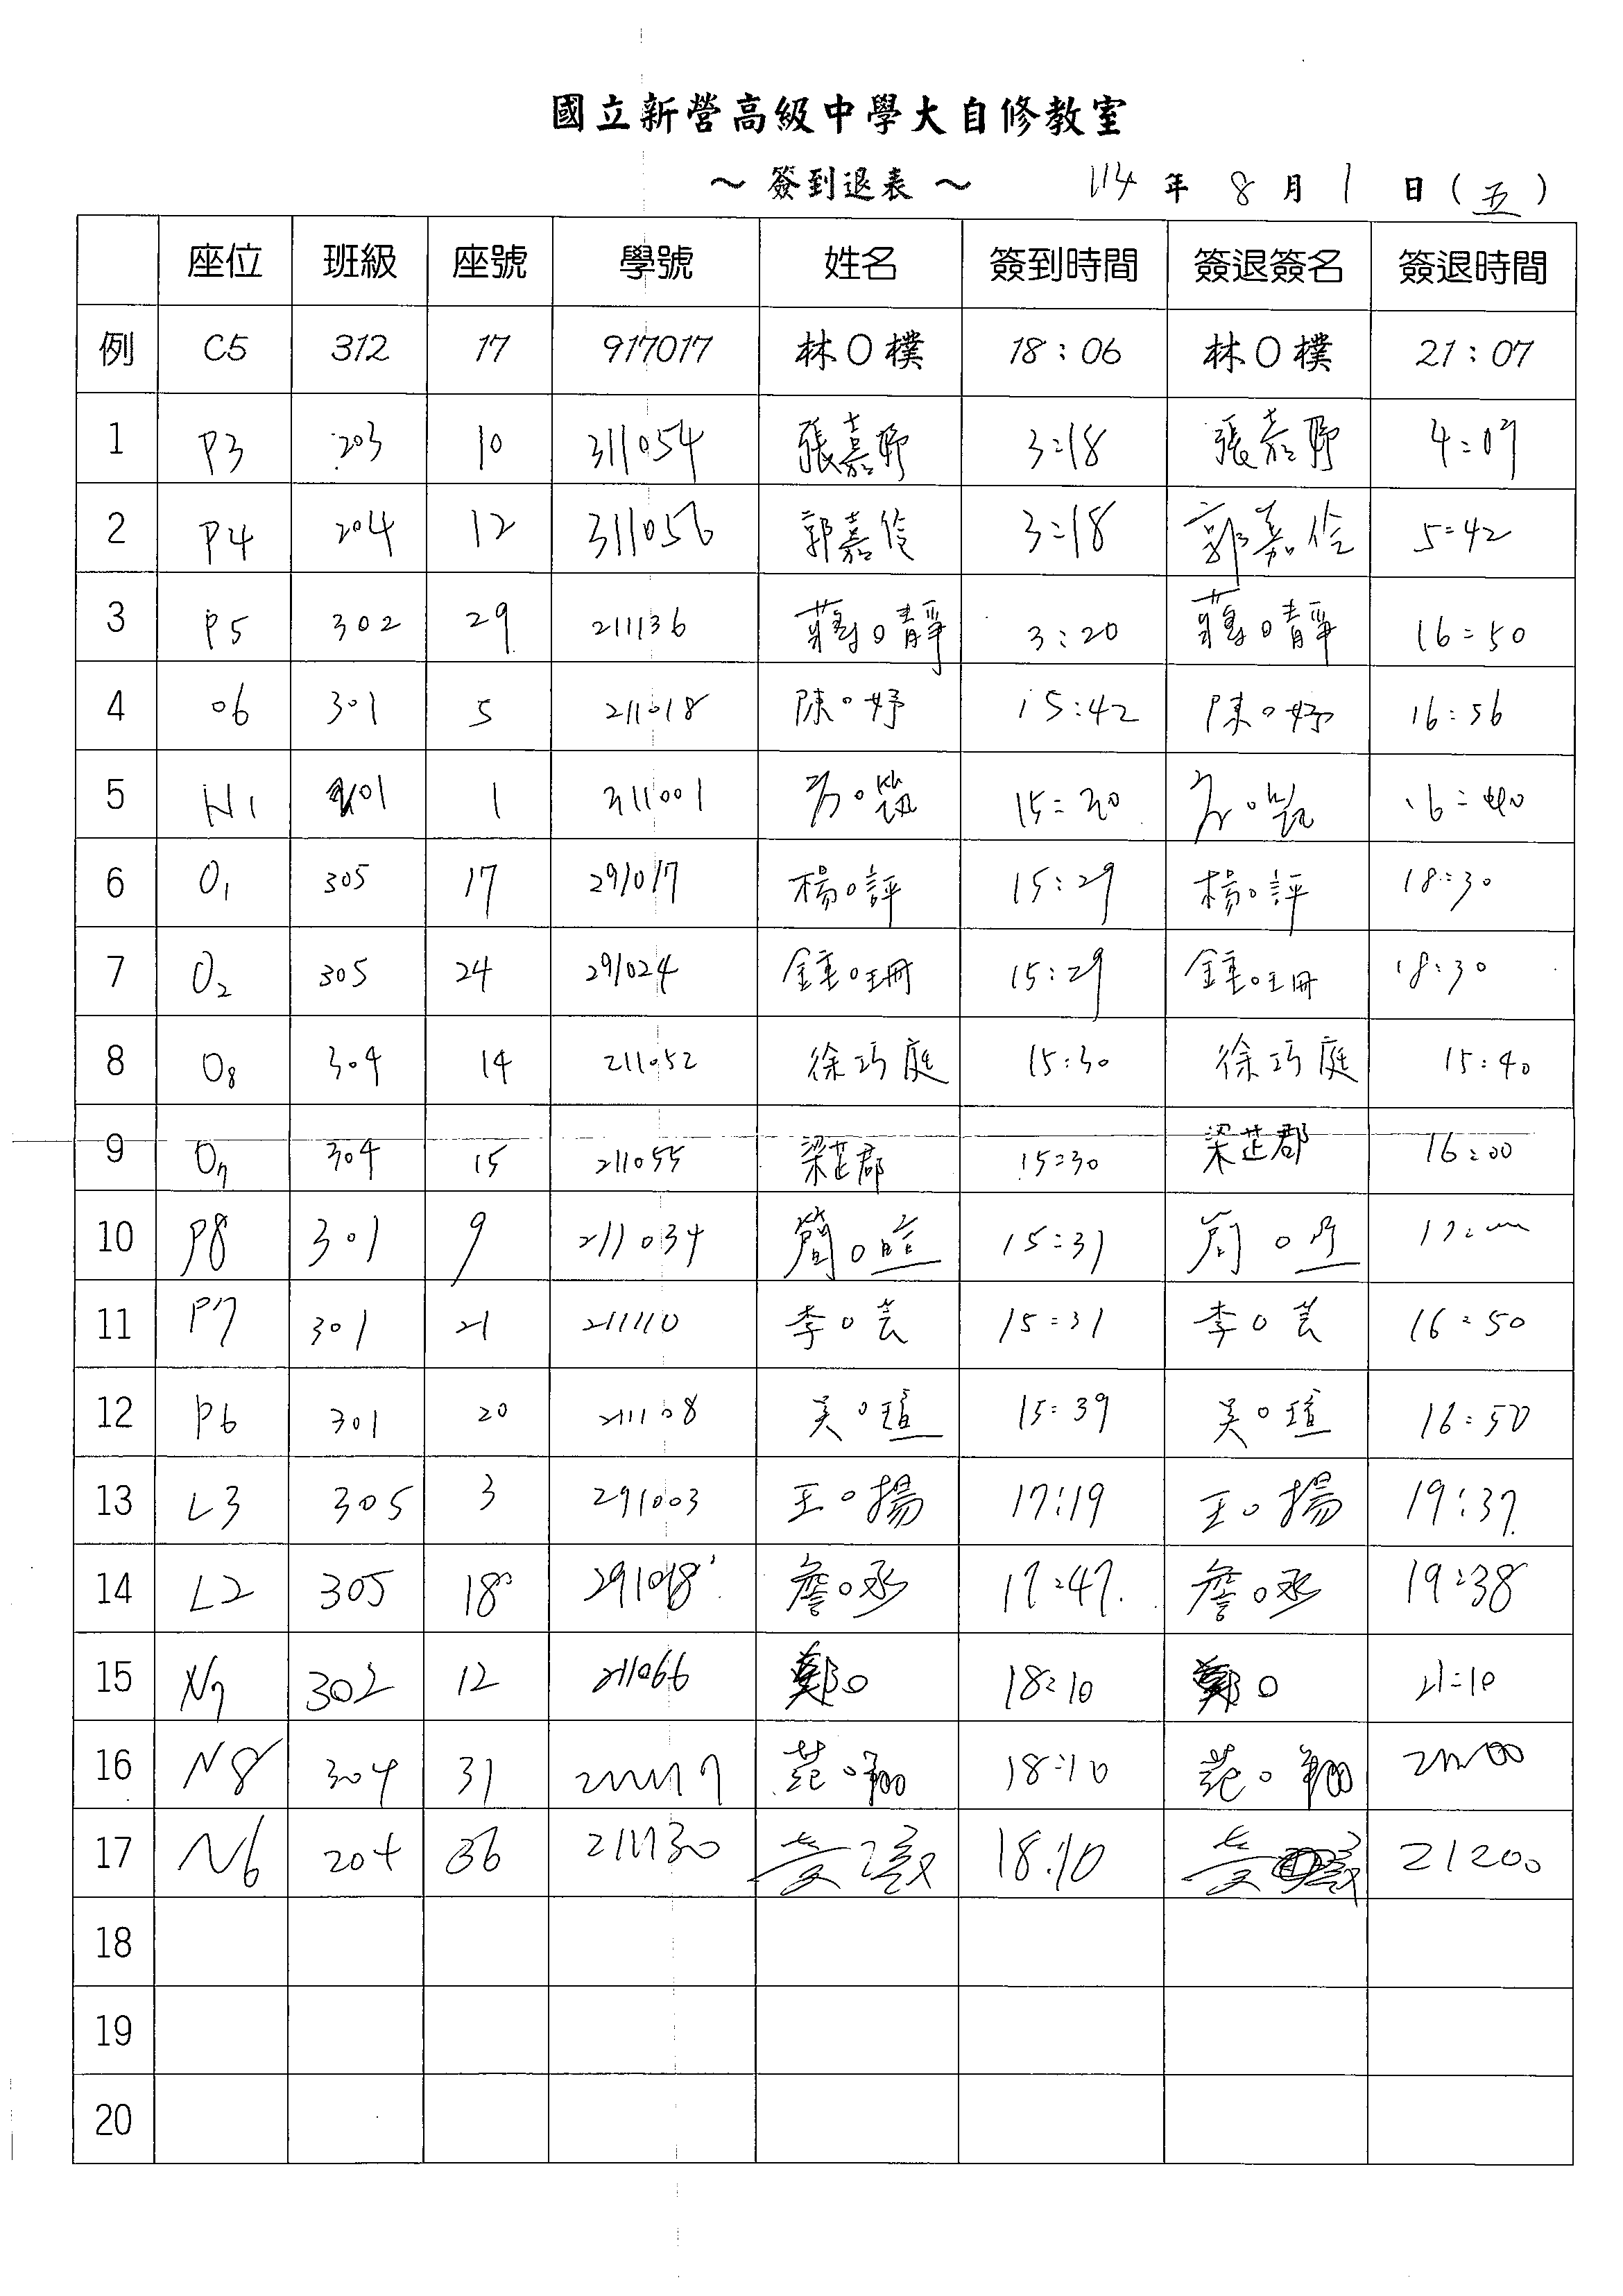 國立新營高級中學大自修教室
～ 簽到退表 ～ 114 年 8 月 1 日 (五)
座位 班級 座號 學號 姓名 簽到時間 簽退簽名 簽退時間
例 C5 312 17 917017 林O樸 18:06 林O樸 21:07
1 P3 203 10 311054 張嘉 3:18 張嘉 4:09
2 P4 204 12 311056 郭嘉伶 3:18 郭嘉伶 5:42
3 P5 302 29 211136 蔣O靜 3:20 蔣O靜 16:50
4 O6 301 5 211018 陳O妤 15:42 陳O妤 16:56
5 N1 1 15:20 16:40
6 O1 305 17 291017 楊O評 15:29 楊O評 18:30
7 O2 305 24 291024 鍾O珊 15:29 鍾O珊 18:30
8 O8 304 14 211052 徐巧庭 15:30 徐巧庭 15:40
9 O7 304 15 211055 梁芷郡 15:30 梁芷郡 16:00
10 P8 301 9 211034 簡O萱 15:31 簡O
11 P7 301 21 211110 李O芸 15:31 李O芸 16:50
12 P6 301 20 211108 吳O瑄 15:39 吳O瑄 16:50
13 L3 305 3 291003 王O揚 17:19 王O揚 19:37
14 L2 305 18 291018 詹O丞 17:47 詹O丞 19:38
15 N7 302 12 211066 鄭O 18:10 鄭O 21:10
16 N8 304 31 范O翔 18:10 范O翔
17 N6 204 36 18:10 21:00
18
19
20